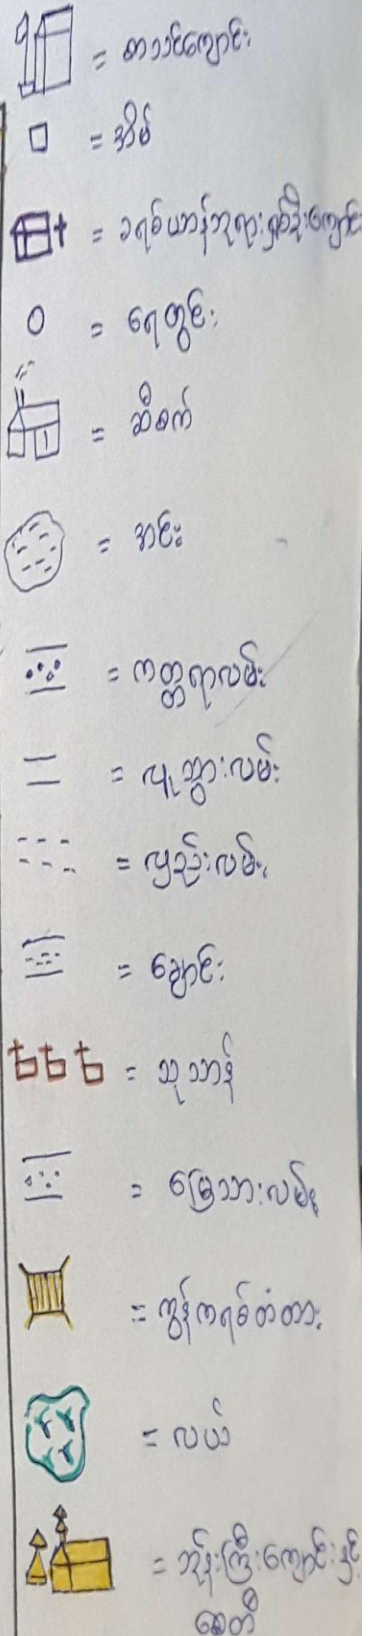 = စာသင်ကျောင်း
= အိမ်
= ခရစ်ယာန်ဘုရားရှစ်ခိုးကျောင်း
= ရေတွင်း
= ဆီစက်
= အင်း
= ကတ္တရာလမ်း
= လူသွားလမ်း
= လှည်းလမ်း
= ချောင်း
= သုသာန်
= မြေသားလမ်း
= ကွန်ကရစ်တံတား
= လယ်
= ဘုန်းကြီးကျောင်းနှင့်
စေတီ